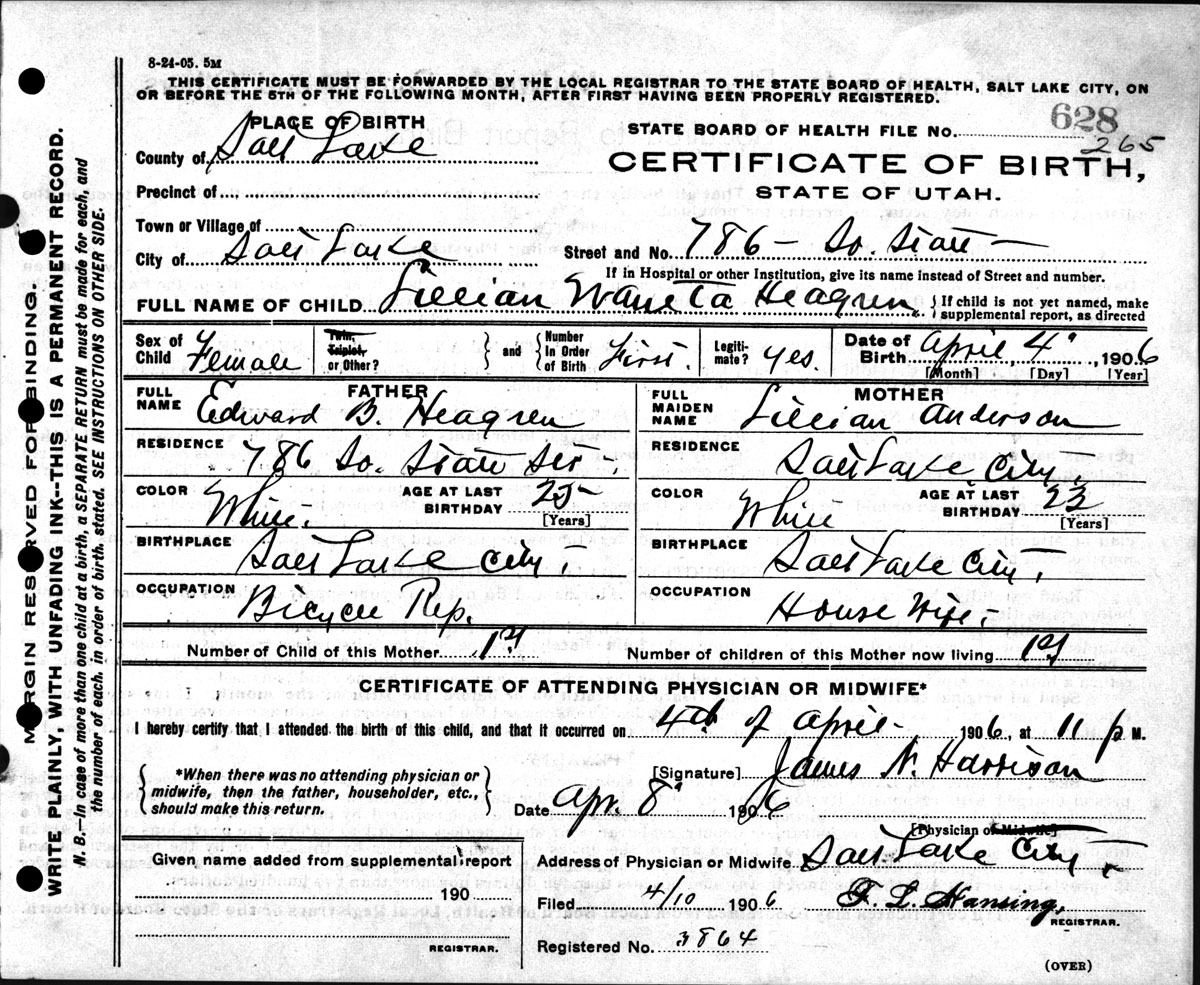 8-24-05. 5M
THIS CERTIFICATE MUST BE FORWARDED BY THE LOCAL REGISTRAR TO THE STATE BOARD OF HEALTH, SALT LAKE CITY, ON
OR BEFORE THE 5TH OF THE FOLLOWING MONTH, AFTER FIRST HAVING BEEN PROPERLY REGISTERED.
PLACE OF BIRTH
STATE BOARD OF HEALTH FILE No. 628
265
County of Salt Lake
CERTIFICATE OF BIRTH,
STATE OF UTAH.
Precinct of
Town or Village of
City of Salt Lake
Street and No. 786 - So. State -
If in Hospital or other Institution, give its name instead of Street and number.
FULL NAME OF CHILD Lillian Waneta Heagren
If child is not yet named, make
supplemental report, as directed
Sex of Child Female
Twin, Triplet, or Other?
and
Number In Order of Birth First.
Legiti-mate? yes.
Date of Birth April 4" 1906
[Month] [Day] [Year]
FATHER
FULL NAME Edward B. Heagren
RESIDENCE 786 So. State Str.
COLOR White.
AGE AT LAST BIRTHDAY 25
[Years]
BIRTHPLACE Salt Lake City.
OCCUPATION Bicycle Rep.
MOTHER
FULL MAIDEN NAME Lillian Anderson
RESIDENCE Salt Lake City.
COLOR White
AGE AT LAST BIRTHDAY 23
[Years]
BIRTHPLACE Salt Lake City.
OCCUPATION House Wife.
Number of Child of this Mother 1st
Number of children of this Mother now living 1st
CERTIFICATE OF ATTENDING PHYSICIAN OR MIDWIFE*
I hereby certify that I attended the birth of this child, and that it occurred on 4th of April - 1906, at 11 p M.
*When there was no attending physician or
midwife, then the father, householder, etc.,
should make this return.
[Signature] James N. Harrison
Date Apr. 8" 1906
[Physician or Midwife]
Given name added from supplemental report
190
REGISTRAR.
Address of Physician or Midwife Salt Lake City.
Filed 4/10 1906
F. L. Hansing,
REGISTRAR.
Registered No. 3864
(OVER)
MARGIN RESERVED FOR BINDING.
WRITE PLAINLY, WITH UNFADING INK--THIS IS A PERMANENT RECORD.
N. B.—In case of more than one child at a birth, a SEPARATE RETURN must be made for each, and
the number of each, in order of birth, stated. SEE INSTRUCTIONS ON OTHER SIDE.